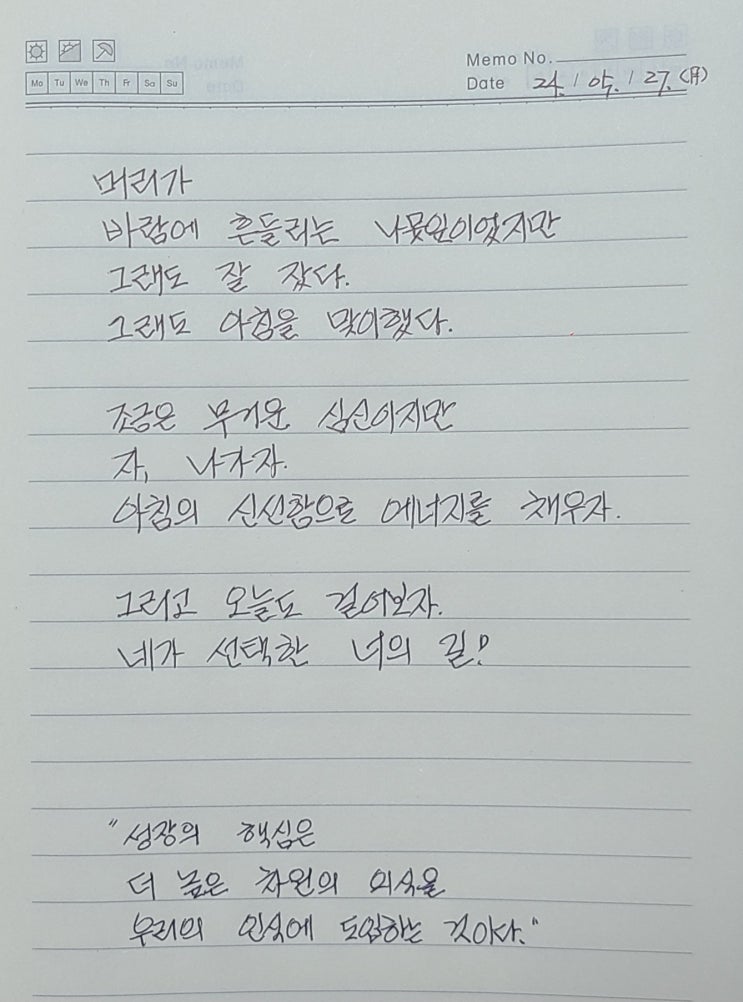 Memo No.
Mo Tu We Th Fr Sa Su
Date 24. / 05. / 27. (月)
머리가
바람에 흔들리는 나뭇잎이었지만
그래도 잘 잤다.
그래도 아침을 맞이했다.
조금은 무거운 심신이지만
자, 나가자.
아침의 신선함으로 에너지를 채우자.
그리고 오늘도 걸어보자.
네가 선택한 너의 길!
"성장의 핵심은
더 높은 차원의 의식을
우리의 인식에 도입하는 것이다."